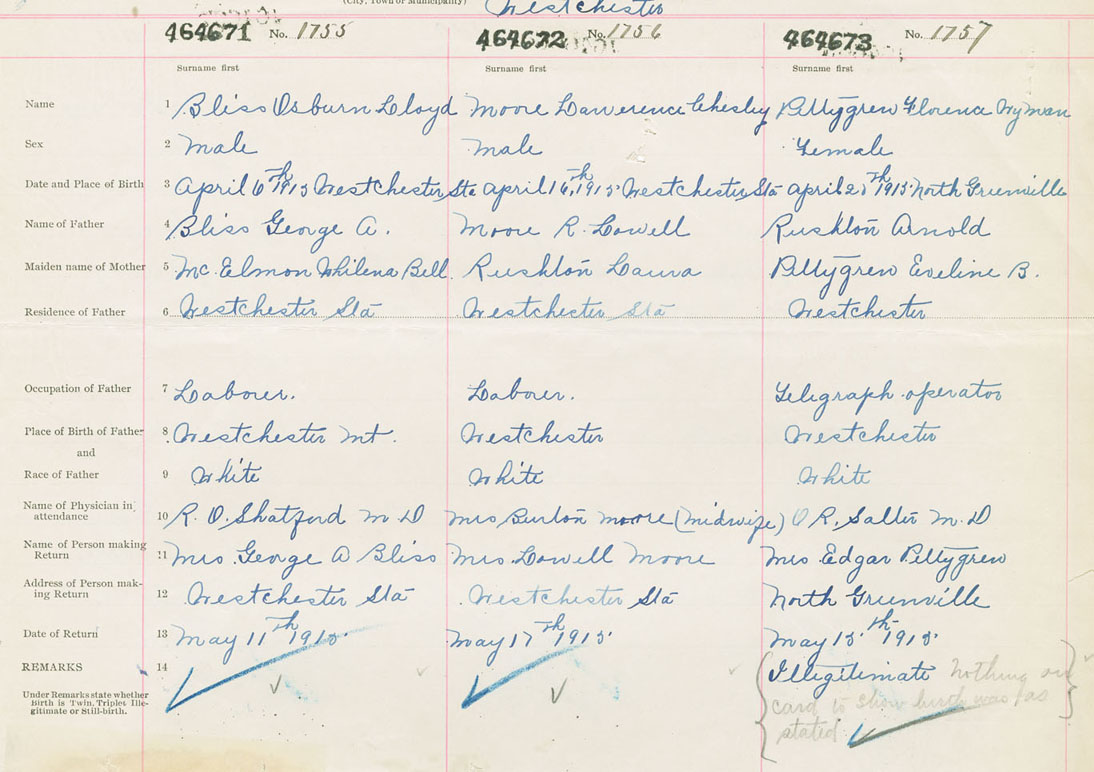 (City, Town or Municipality) Westchester
464671 No. 1755 464672 No. 1756 464673 No. 1757
Surname first Surname first Surname first
Name 1 Bliss Osburn Lloyd Moore Lawerence Chesley Pettygrew Florence Wyman
Sex 2 Male Male Female
Date and Place of Birth 3 April 6th 1915 Westchester Sta April 16th, 1915 Westchester Sta April 20th 1915 North Greenville
Name of Father 4 Bliss George A. Moore R. Lowell Rushton Arnold
Maiden name of Mother 5 Mc. Elmon Whilena Bell. Rushton Laura Pettygrew Eveline B.
Residence of Father 6 Westchester Sta Westchester Sta Westchester
Occupation of Father 7 Laborer. Laborer. Telegraph operator
Place of Birth of Father 8 Westchester Mt. Westchester Westchester
and
Race of Father 9 White White White
Name of Physician in attendance 10 R. O. Shatford M D Mrs Burton Moore (Midwife) O R. Salter M. D
Name of Person making Return 11 Mrs. George A Bliss Mrs. Lowell Moore Mrs. Edgar Pettygrew
Address of Person making Return 12 Westchester Sta Westchester Sta North Greenville
Date of Return 13 May 11th 1915. May 17th 1915. May 15th 1915.
REMARKS 14 Illegitimate Nothing on
Under Remarks state whether Birth is Twin, Triplet Illegitimate or Still-birth. card to show birth was as
stated